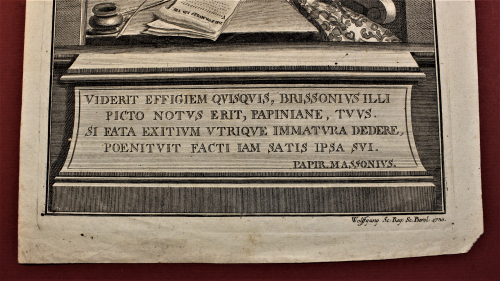 VIDERIT EFFIGIEM QVISQVIS, BRISSONIVS ILLI
PICTO NOTVS ERIT, PAPINIANE, TVVS.
SI FATA EXITIVM VTRIQVE IMMATVRA DEDERE,
POENITVIT FACTI IAM SATIS IPSA SVI.
PAPIR. MASSONIVS.
Wolffgang Sc. Reg. Sc. Berol. 1720.